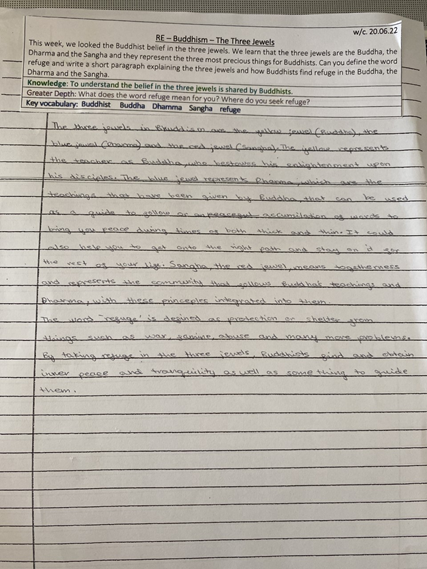 w/c. 20.06.22
RE – Buddhism – The Three Jewels
This week, we looked the Buddhist belief in the three jewels. We learn that the three jewels are the Buddha, the
Dharma and the Sangha and they represent the three most precious things for Buddhists. Can you define the word
refuge and write a short paragraph explaining the three jewels and how Buddhists find refuge in the Buddha, the
Dharma and the Sangha.
Knowledge: To understand the belief in the three jewels is shared by Buddhists.
Greater Depth: What does the word refuge mean for you? Where do you seek refuge?
Key vocabulary: Buddhist Buddha Dhamma Sangha refuge
The three jewels in Buddhism are the yellow jewel (Buddha), the
blue jewel (Dharma) and the red jewel (Sangha). The yellow represents
the teacher as Buddha, who bestows his enlightenment upon
his disciples. The blue jewel represents Dharma, which are the
teachings that have been given by Buddha that can be used
as a guide to follow or accumilation of words to
bring you peace during times of both thick and thin. It could
also help you to get onto the right path and stay on it for
the rest of your life. Sangha, the red jewel, means togetherness
and represents the community that follows Buddha's teachings and
Dharma, with these principles integrated into them.
The word 'refuge' is defined as protection or shelter from
things such as war, famine, abuse and many more problems.
By taking refuge in the three jewels, Buddhists find and obtain
inner peace and tranquility as well as something to guide
them.